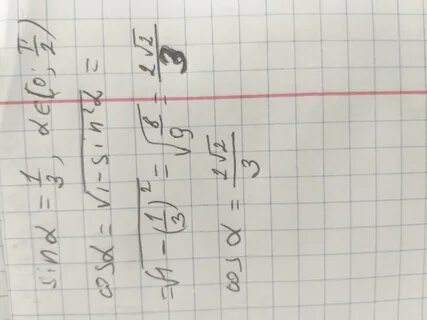 sinα = 1/3, α∈(0; π/2)
cosα = √(1-sin²α) =
= √(1-(1/3)²) = √(8/9) = 2√2/3
cosα = 2√2/3